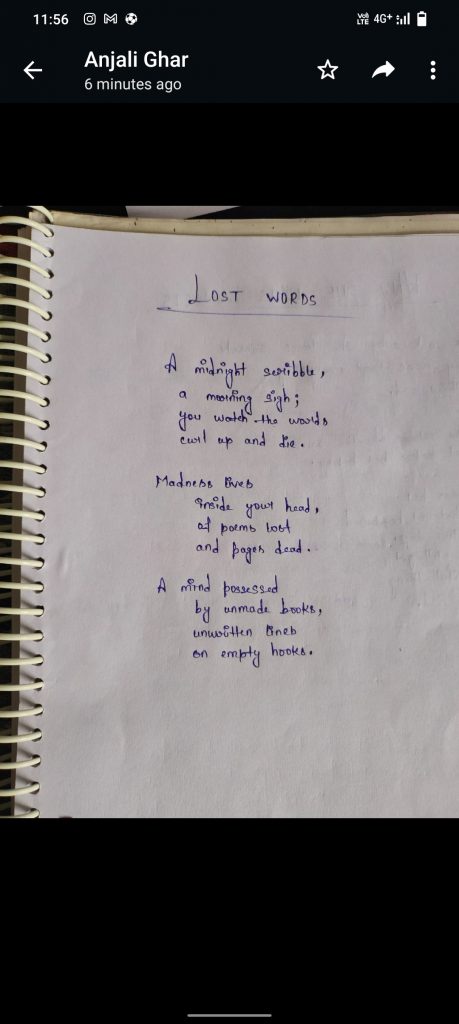 11:56
VoLTE 4G+
Anjali Ghar
6 minutes ago
LOST WORDS
A midnight scribble,
a morning sigh;
you watch the words
curl up and die.
Madness lives
inside your head,
of poems lost
and pages dead.
A mind possessed
by unmade books,
unwritten lines
on empty hooks.